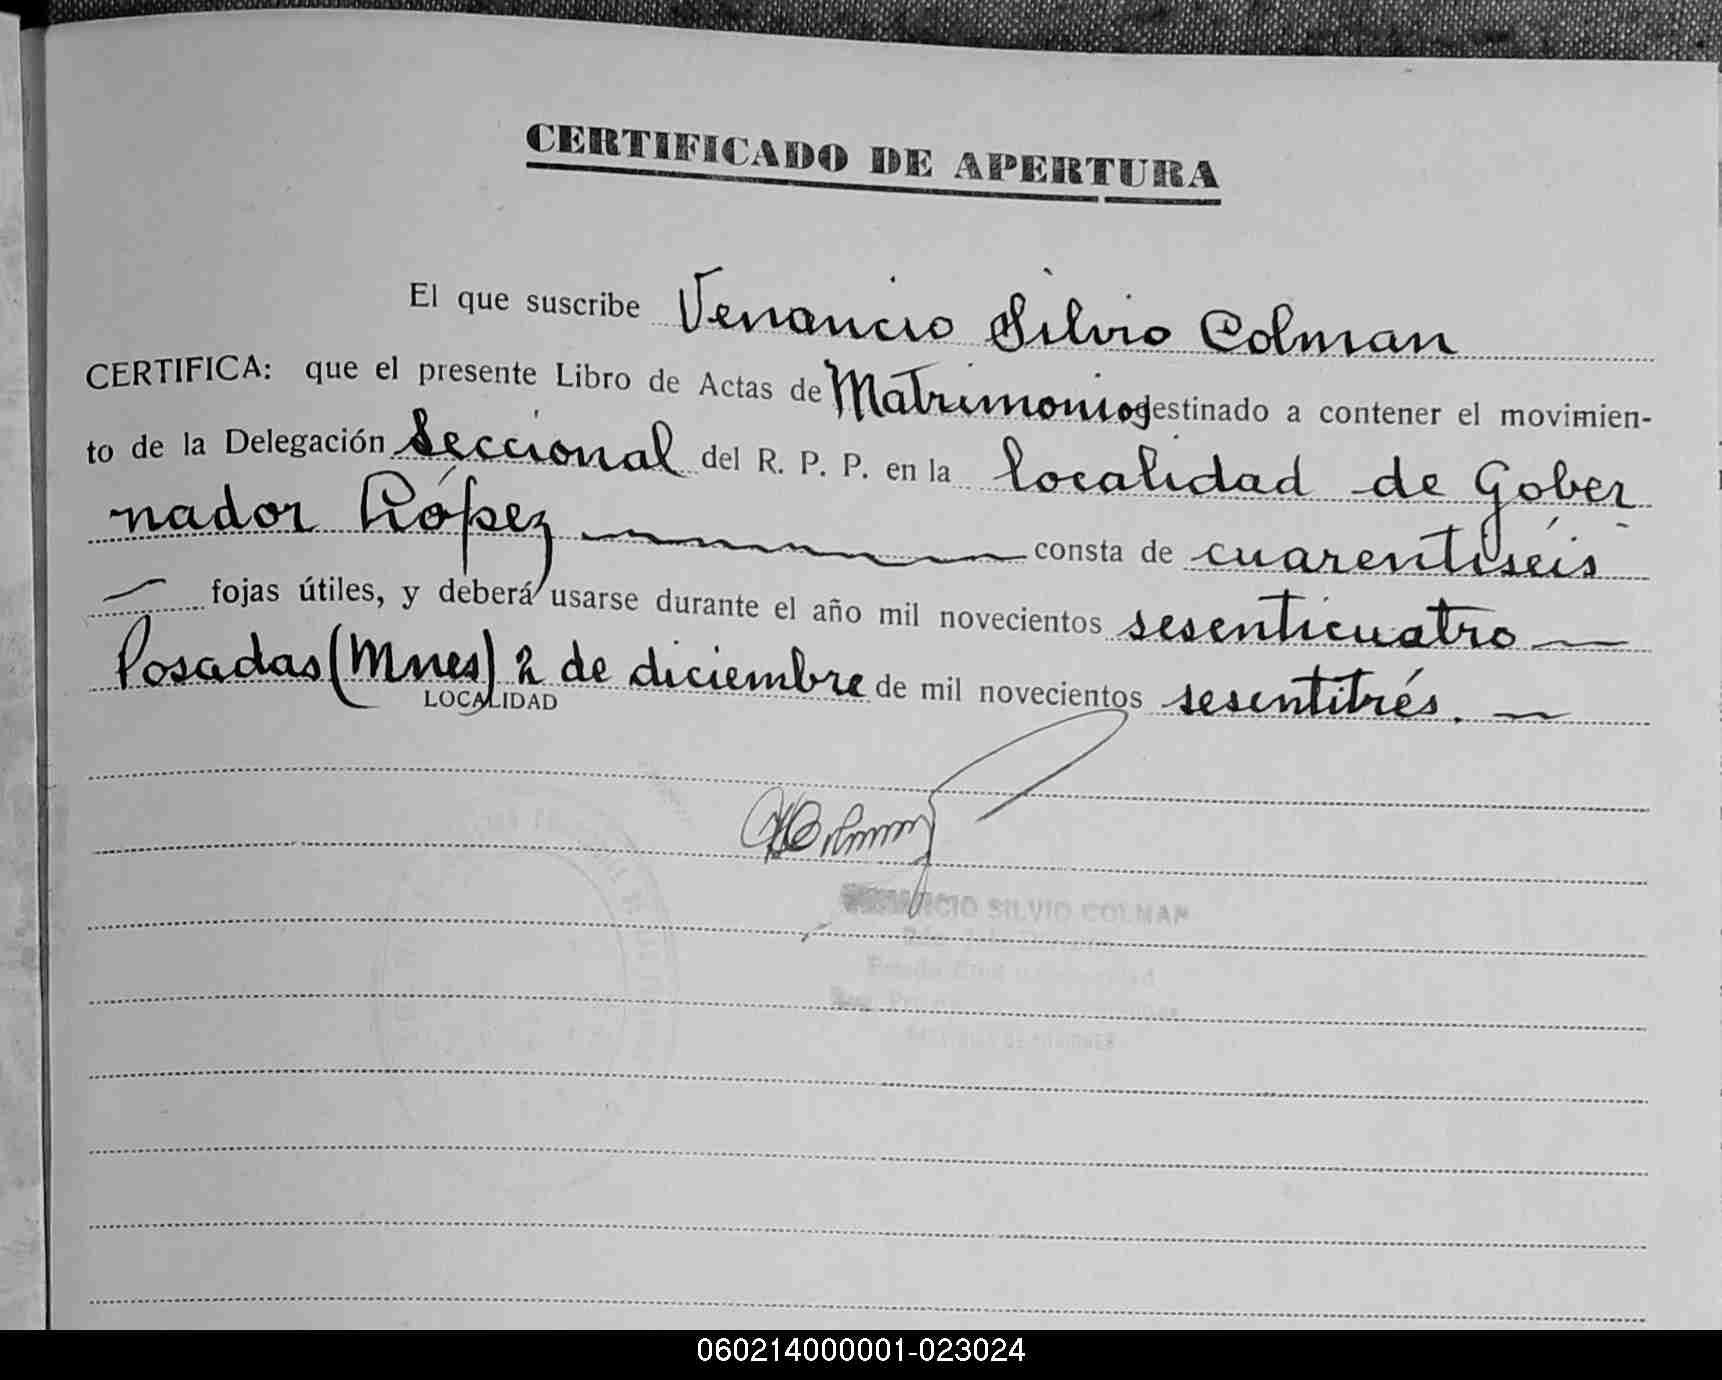 CERTIFICADO DE APERTURA
El que suscribe Venancio Silvio Colman
CERTIFICA: que el presente Libro de Actas de Matrimonios destinado a contener el movimien-
to de la Delegación Seccional del R. P. P. en la localidad de Gober
nador López consta de cuarentiséis
fojas útiles, y deberá usarse durante el año mil novecientos sesenticuatro
Posadas (Mnes) 2 de diciembre de mil novecientos sesentitrés.
LOCALIDAD
Colman
SILVIO COLMAN
060214000001-023024